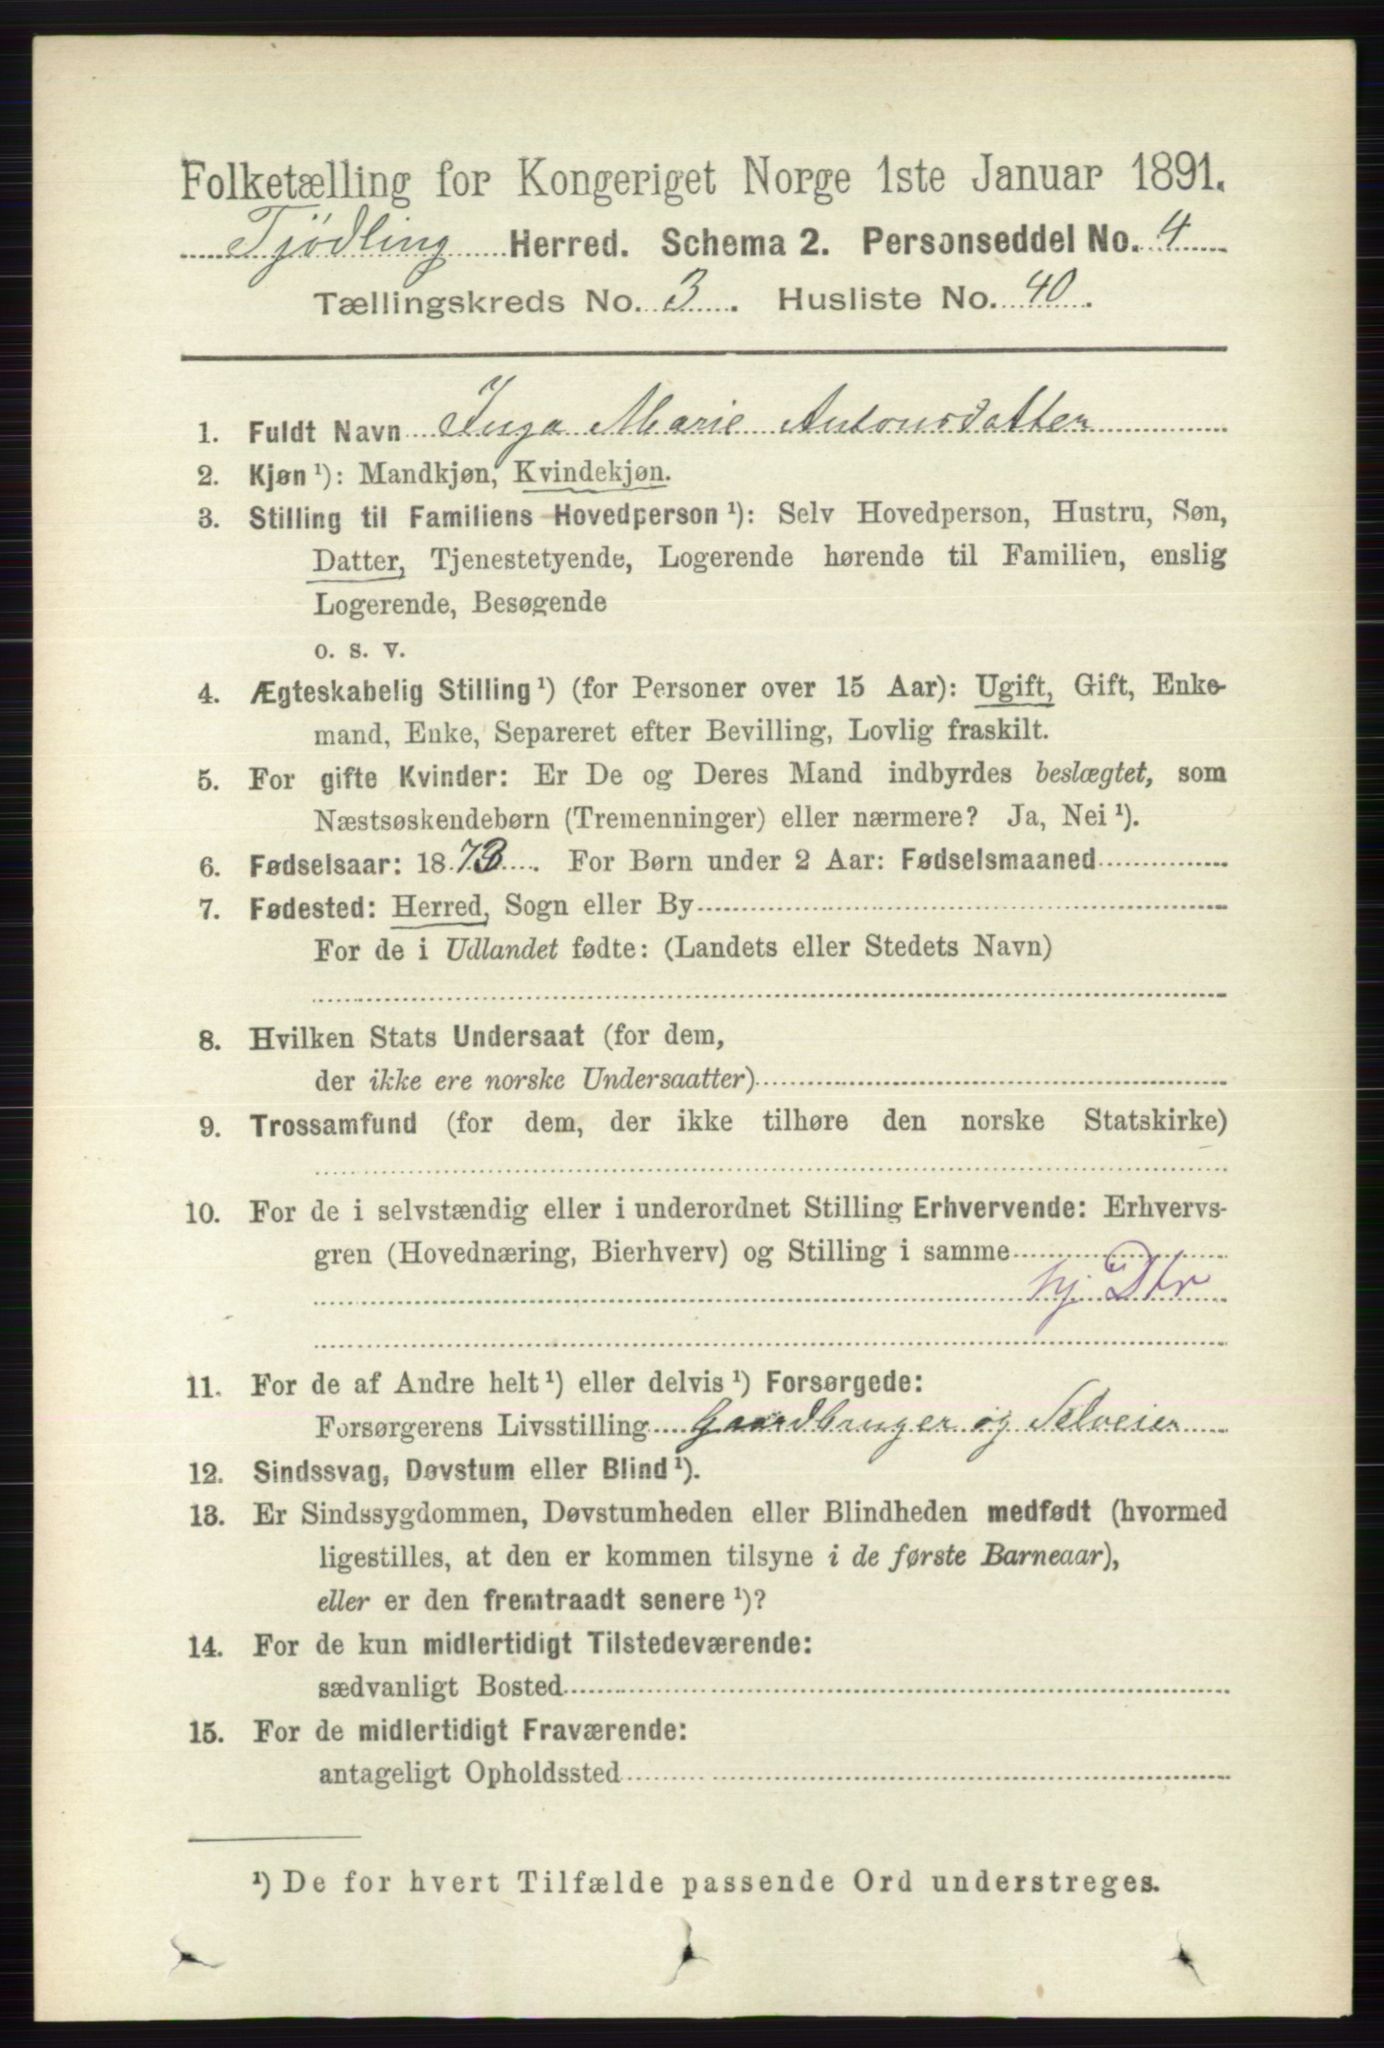 Folketælling for Kongeriget Norge 1ste Januar 1891.
Tjødling Herred. Schema 2. Personseddel No. 4
Tællingskreds No. 3. Husliste No. 40.
1. Fuldt Navn Inga Marie Antonsdatter
2. Kjøn ¹): Mandkjøn, Kvindekjøn.
3. Stilling til Familiens Hovedperson ¹): Selv Hovedperson, Hustru, Søn,
Datter, Tjenestetyende, Logerende hørende til Familien, enslig
Logerende, Besøgende
o. s. v.
4. Ægteskabelig Stilling ¹) (for Personer over 15 Aar): Ugift, Gift, Enke-
mand, Enke, Separeret efter Bevilling, Lovlig fraskilt.
5. For gifte Kvinder: Er De og Deres Mand indbyrdes beslægtet, som
Næstsøskendebørn (Tremenninger) eller nærmere? Ja, Nei ¹).
6. Fødselsaar: 1873. For Børn under 2 Aar: Fødselsmaaned
7. Fødested: Herred, Sogn eller By
For de i Udlandet fødte: (Landets eller Stedets Navn)
8. Hvilken Stats Undersaat (for dem,
der ikke ere norske Undersaatter)
9. Trossamfund (for dem, der ikke tilhøre den norske Statskirke)
10. For de i selvstændig eller i underordnet Stilling Erhvervende: Erhvervs-
gren (Hovednæring, Bierhverv) og Stilling i samme
hj. Dtr
11. For de af Andre helt ¹) eller delvis ¹) Forsørgede:
Forsørgerens Livsstilling Gaardbruger og Selveier
12. Sindssvag, Døvstum eller Blind ¹).
13. Er Sindssygdommen, Døvstumheden eller Blindheden medfødt (hvormed
ligestilles, at den er kommen tilsyne i de første Barneaar),
eller er den fremtraadt senere ¹)?
14. For de kun midlertidigt Tilstedeværende:
sædvanligt Bosted
15. For de midlertidigt Fraværende:
antageligt Opholdssted
¹) De for hvert Tilfælde passende Ord understreges.